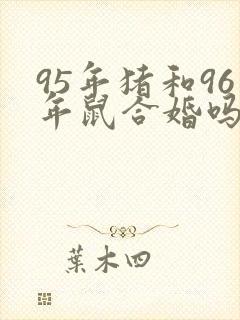 95年猪和96
年鼠合婚吗
葉木四